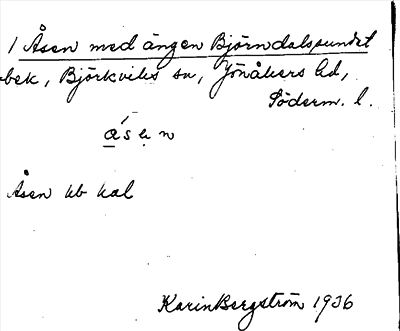 1 Åsen med ängen Björndalssundet
bek, Björkviks sn, Jönåkers hd,
Söderm. l.
a̲´sẹn
Åsen kb kal
Karin Bergström 1936